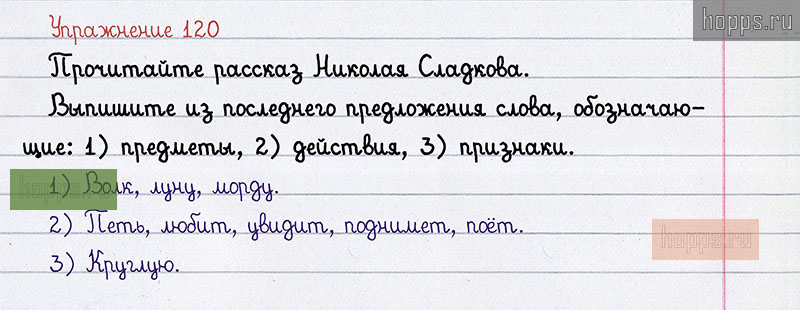 hopps.ru
Упражнение 120
Прочитайте рассказ Николая Сладкова.
Выпишите из последнего предложения слова, обозначаю-
щие: 1) предметы, 2) действия, 3) признаки.
hopps.ru
1) Волк, луну, морду.
2) Петь, любит, увидит, поднимет, поёт.
hopps.ru
3) Круглую.